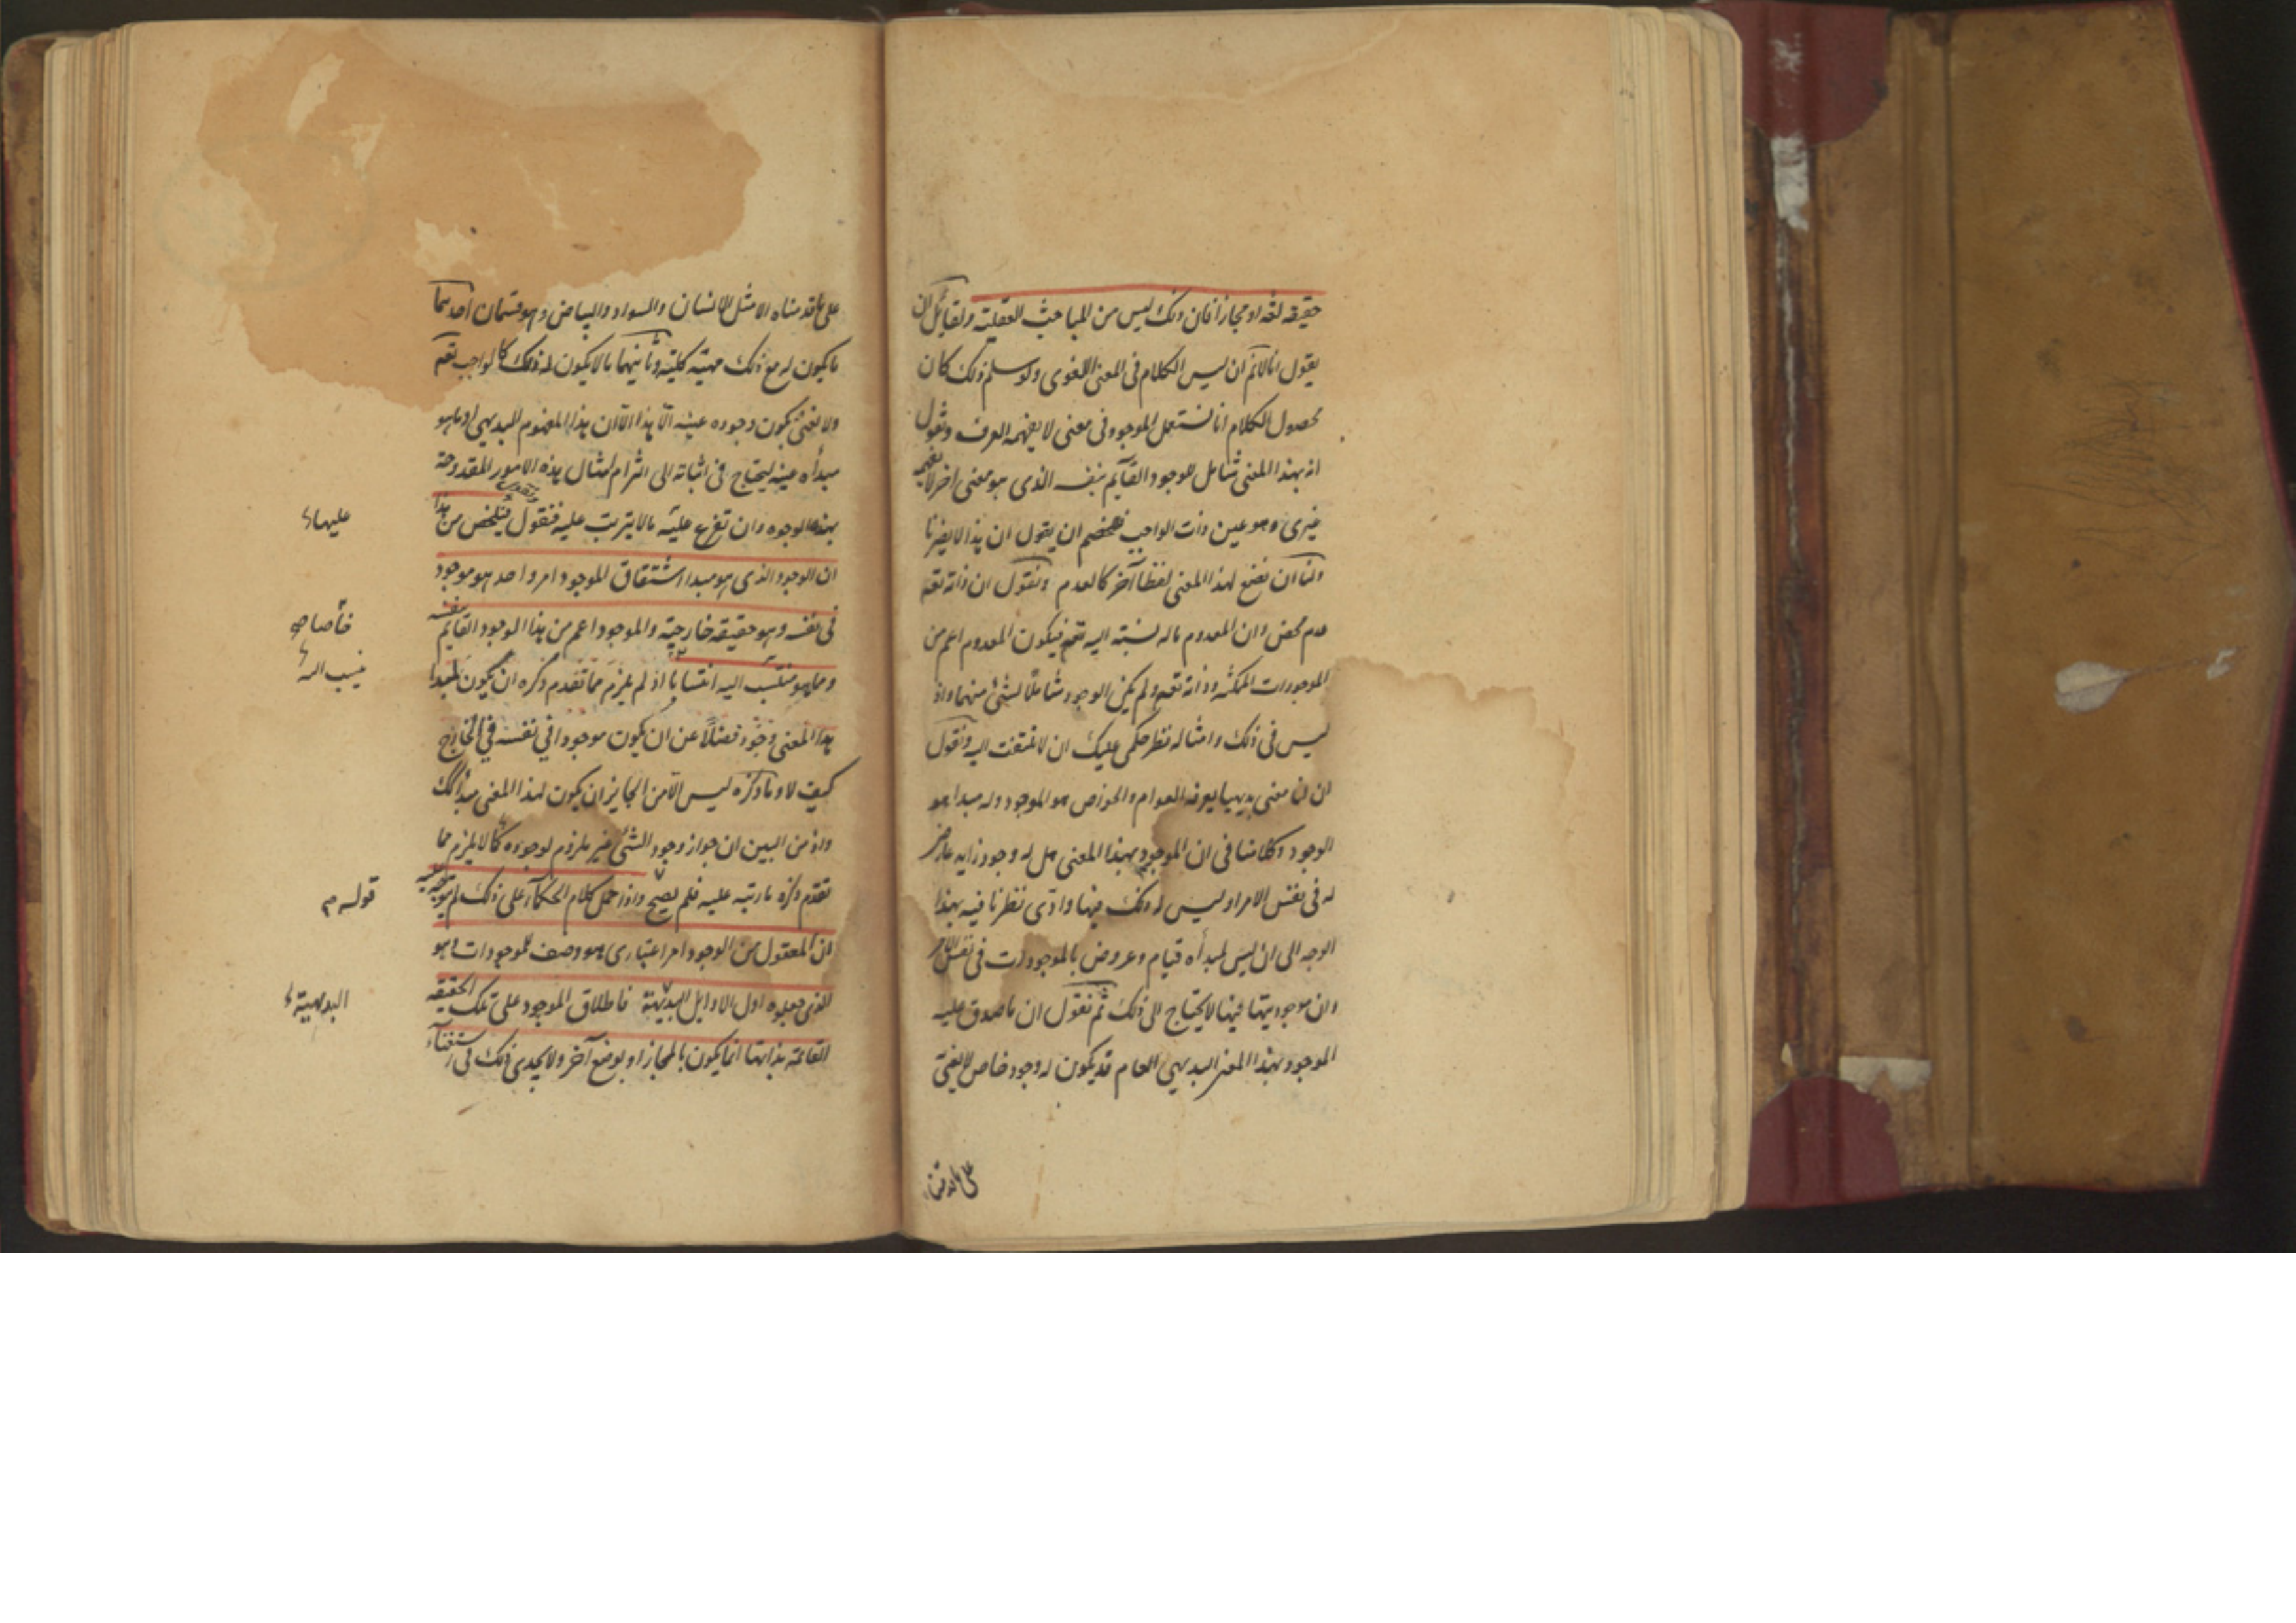 حقيقه لغة او مجازا فان ذلك ليس من المباحث العقلية ولقائل ان
يقول انا لانم ان ليس الكلام فى المعنى اللغوى ولو سلم ذلك كان
محصول الكلام انا نستعمل الموجود فى معنى لا يفهمه العرف ونقول
انه بهذا المعنى شامل للوجود القآيم بنفسه الذى هو معنى اخر لا يفهمه
غيرى وهو عين ذات الواجب فللخصم ان يقول ان هذا لا يضرنا
ولنا ان نضع لهذا المعنى لفظا آخر كالعدم ونقول ان ذاته تعه
عدم محض وان المعدوم ماله نسبته اليه تعه فيكون المعدوم اعم من
الموجودات الممكنه وذاته تعه ولم يكن الوجود شاملا لشئ منهما واذ
ليس فى ذلك وامثاله نظر حكمى عليك ان لا تلتفت اليه ونقول
ان لنا معنى بديهيا يعرفه العوام والخواص هو الموجود وله مبدا هو
الوجود وكلامنا فى ان الموجود بهذا المعنى هل له وجود زايد عارض
له فى نفس الامر او ليس له ذلك فيها وادى نظرنا فيه بهذا
الوجه الى ان ليس لمبدأه قيام وعروض بالموجودات فى نفس الامر
وان موجوديتها فيها لا يحتاج الى ذلك ثم نقول ان ما صدق عليه
الموجود بهذا المعنى البديهى العام قد يكون له وجود خاص لا بمعنى
على ما قدمناه
على ما قدمناه الا مثل الانسان والسواد والبياض وهو قسمان احدهما
ما يكون له مع ذلك مهيته كلية وثانيهما ما لا يكون له ذلك كالواجب تعه
ولا نعنى بكون وجوده عينه الا هذا الا ان هذا المفهوم البديهى او ما هو
مبدأه عينه ليحتاج فى اثباته الى التزام امثال هذه الامور المقدوحة
بهذه الوجوه وان تفرع عليه ما لا يترتب عليه فنقول قوله فيتلخص من هذا
عليها
ان الوجود الذى هو مبدا اشتقاق الموجود امر واحد هو موجود
فى نفسه وهو حقيقه خارجية والموجود اعم من هذا الوجود القآيم بنفسه
خاصا
ومما هو منتسب اليه انتسابا اذ لم يلزم مما تقدم ذكره ان يكون لمبدا
هذا المعنى وجود فضلا عن ان يكون موجودا فى نفسه فى الخارج
كيف لا وما ذكره ليس الا من الجايز ان يكون لهذا المعنى مبدأ كذلك
واذ من البين ان جواز وجود الشئ غير ملزوم لوجوده كما لا يلزم مما
تقدم ذكره ما رتبه عليه فلم يصح واذا حمل كلام الحكمآء على ذلك لم يتوجه عليه
قوله م
ان المعقول من الوجود امر اعتبارى هو وصف للموجودات وهو
الذى جعلوه اول الاوايل البديهية فاطلاق الموجود على تلك الحقيقه
البديهية
القائمة بذاتها انما يكون بالمجاز او بوضع آخر ولا يجدى ذلك فى استغنآء